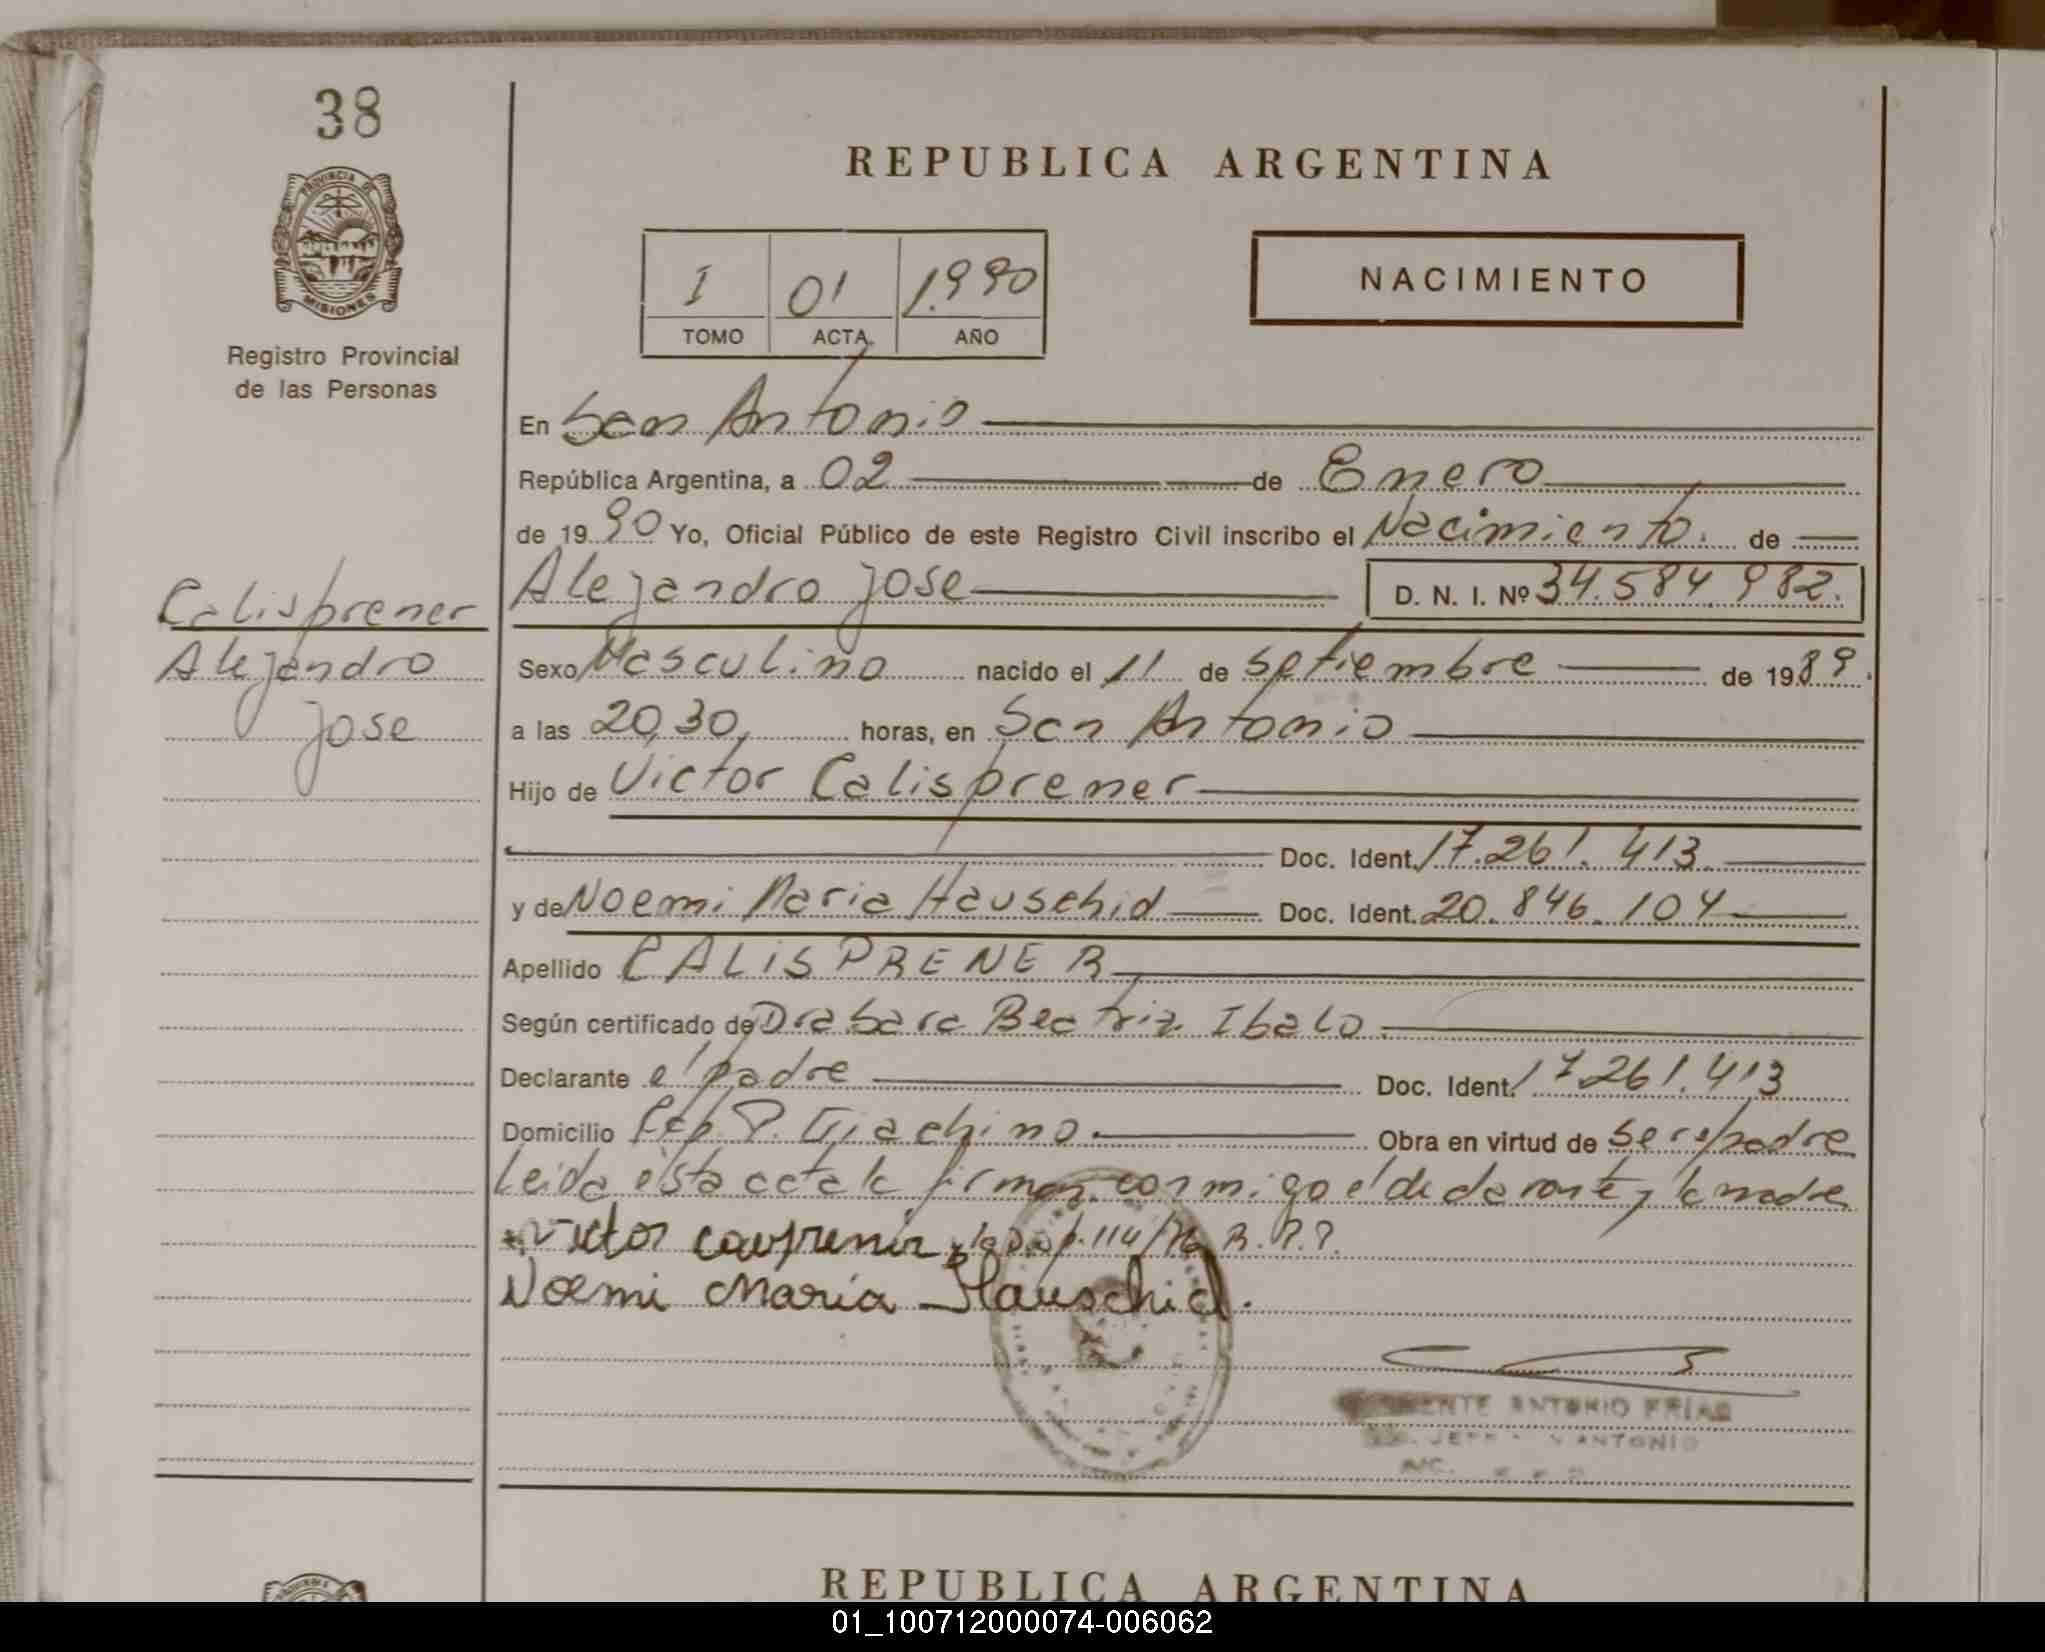 38
PROVINCIA DE
MISIONES
Registro Provincial
de las Personas
REPUBLICA ARGENTINA
I 01 1.990
TOMO ACTA AÑO
NACIMIENTO
En San Antonio
República Argentina, a 02 de Enero
de 1990 Yo, Oficial Público de este Registro Civil inscribo el Nacimiento. de
Alejandro Jose D. N. I. Nº 34.584.982.
Calisprener
Alejandro
Jose
Sexo Masculino nacido el 11 de Setiembre de 1989.
a las 20,30, horas, en San Antonio
Hijo de Victor Calisprener
Doc. Ident. 17.261.413.
y de Noemi Maria Hauschid Doc. Ident. 20.846.104
Apellido CALISPRENER
Según certificado de Drabara Beatriz Ibalo
Declarante el padre Doc. Ident. 17.261.413
Domicilio P. Giachino. Obra en virtud de ser el padre
Leida esta acta la firman conmigo el declarante y la madre
Victor 114/76 R.P.P.
Noemi Maria Hauschid.
ANTONIO FRIAS
ANTONIO
REPUBLICA ARGENTINA
01_100712000074-006062